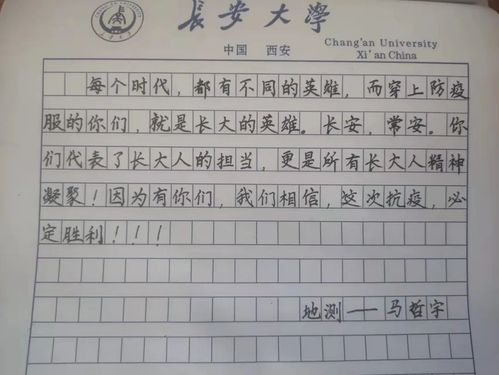 長安大學
中国 西安
Chang'an University
Xi'an China
每个时代，都有不同的英雄，而穿上防疫
服的你们，就是长大的英雄。长安，常安。你
们代表了长大人的担当，更是所有长大人精神
凝聚！因为有你们，我们相信，这次抗疫，必
定胜利！！！
地测——马哲宇